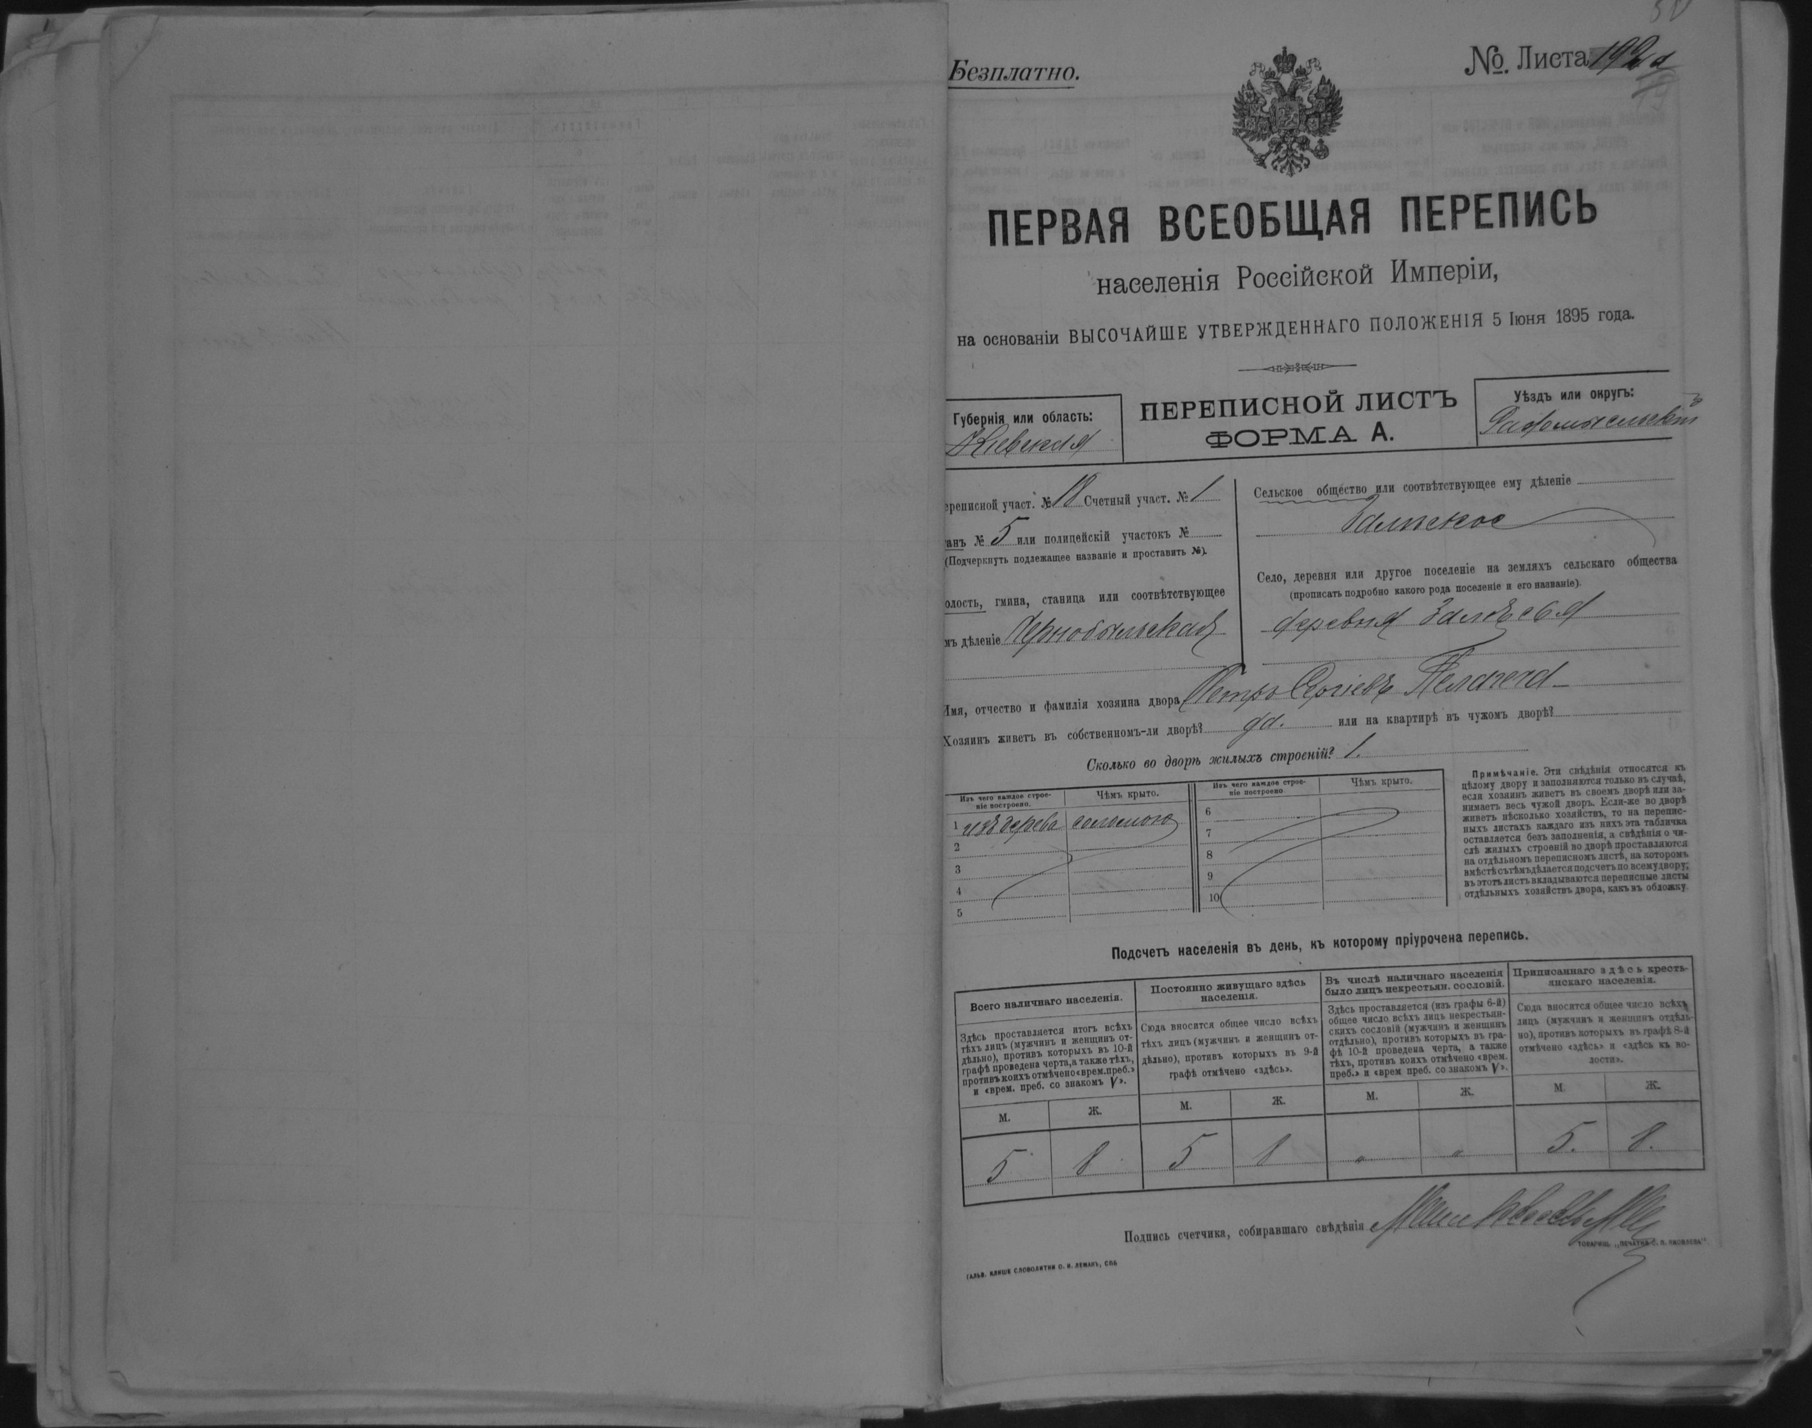 Безплатно.
№. Листа 192
ПЕРВАЯ ВСЕОБЩАЯ ПЕРЕПИСЬ
населенія Россійской Имперіи,
на основаніи ВЫСОЧАЙШЕ УТВЕРЖДЕННАГО ПОЛОЖЕНІЯ 5 Іюня 1895 года.
Губернія или область:
Кіевская
ПЕРЕПИСНОЙ ЛИСТЪ
ФОРМА А.
Уѣздъ или округъ:
Радомысльскій
ереписной участ. № 18 Счетный участ. № 1
анъ № 5 или полицейскій участокъ №
(Подчеркнуть подлежащее названіе и проставить №).
олость, гмина, станица или соотвѣтствующее
мъ дѣленіе Чернобыльская
Сельское общество или соотвѣтствующее ему дѣленіе
Село, деревня или другое поселеніе на земляхъ сельскаго общества
(прописать подробно какого рода поселеніе и его названіе).
деревня Залѣсья
Имя, отчество и фамилія хозяина двора Петръ Сергіевъ
Хозяинъ живетъ въ собственномъ-ли дворѣ? да. или на квартирѣ въ чужомъ дворѣ?
Сколько во дворѣ жилыхъ строеній? 1.
Изъ чего каждое строе-
ніе построено.
Чѣмъ крыто.
Изъ чего каждое строе-
ніе построено
Чѣмъ крыто.
1 изъ дерева соломою
2
3
4
5
6
7
8
9
10
Примѣчаніе. Эти свѣдѣнія относятся къ
цѣлому двору и заполняются только въ случаѣ,
если хозяинъ живетъ въ своемъ дворѣ или за-
нимаетъ весь чужой дворъ. Если-же во дворѣ
живетъ нѣсколько хозяйствъ, то на перепис-
ныхъ листахъ каждаго изъ нихъ эта табличка
оставляется безъ заполненія, а свѣдѣнія о чи-
слѣ жилыхъ строеній во дворѣ проставляются
на отдѣльномъ переписномъ листѣ, на которомъ
вмѣстѣ съ тѣмъ дѣлается подсчетъ по всему двору;
въ этотъ листъ вкладываются переписные листы
отдѣльныхъ хозяйствъ двора, какъ въ обложку.
Подсчетъ населенія въ день, къ которому пріурочена перепись.
Всего наличнаго населенія.
Здѣсь проставляется итогъ всѣхъ
тѣхъ лицъ (мужчинъ и женщинъ от-
дѣльно), противъ которыхъ въ 10-й
графѣ проведена черта, а также тѣхъ,
противъ коихъ отмѣчено «врем. преб.»
и «врем. преб. со знакомъ V».
М. Ж.
5 8
Постоянно живущаго здѣсь
населенія.
Сюда вносится общее число всѣхъ
тѣхъ лицъ (мужчинъ и женщинъ от-
дѣльно), противъ которыхъ въ 9-й
графѣ отмѣчено «здѣсь».
М. Ж.
5 8
Въ числѣ наличнаго населенія
было лицъ некрестьян. сословій.
Здѣсь проставляется (изъ графы 6-й)
общее число всѣхъ лицъ некрестьян-
скихъ сословій (мужчинъ и женщинъ
отдѣльно), противъ которыхъ въ гра-
фѣ 10-й проведена черта, а также
тѣхъ, противъ коихъ отмѣчено «врем.
преб.» и «врем преб. со знакомъ V».
М. Ж.
" "
Приписаннаго здѣсь кресть-
янскаго населенія.
Сюда вносится общее число всѣхъ
лицъ (мужчинъ и женщинъ отдѣль-
но), противъ которыхъ въ графѣ 8-й
отмѣчено «здѣсь» и «здѣсь къ во-
лости».
М. Ж.
5. 8.
Подпись счетчика, собиравшаго свѣдѣнія
ТОВАРИЩ. „ПЕЧАТНЯ С. П. ЯКОВЛЕВА".
ГАЛЬВ. КЛИШЕ СЛОВОЛИТНИ О. И. ЛЕМАНЪ, СПБ